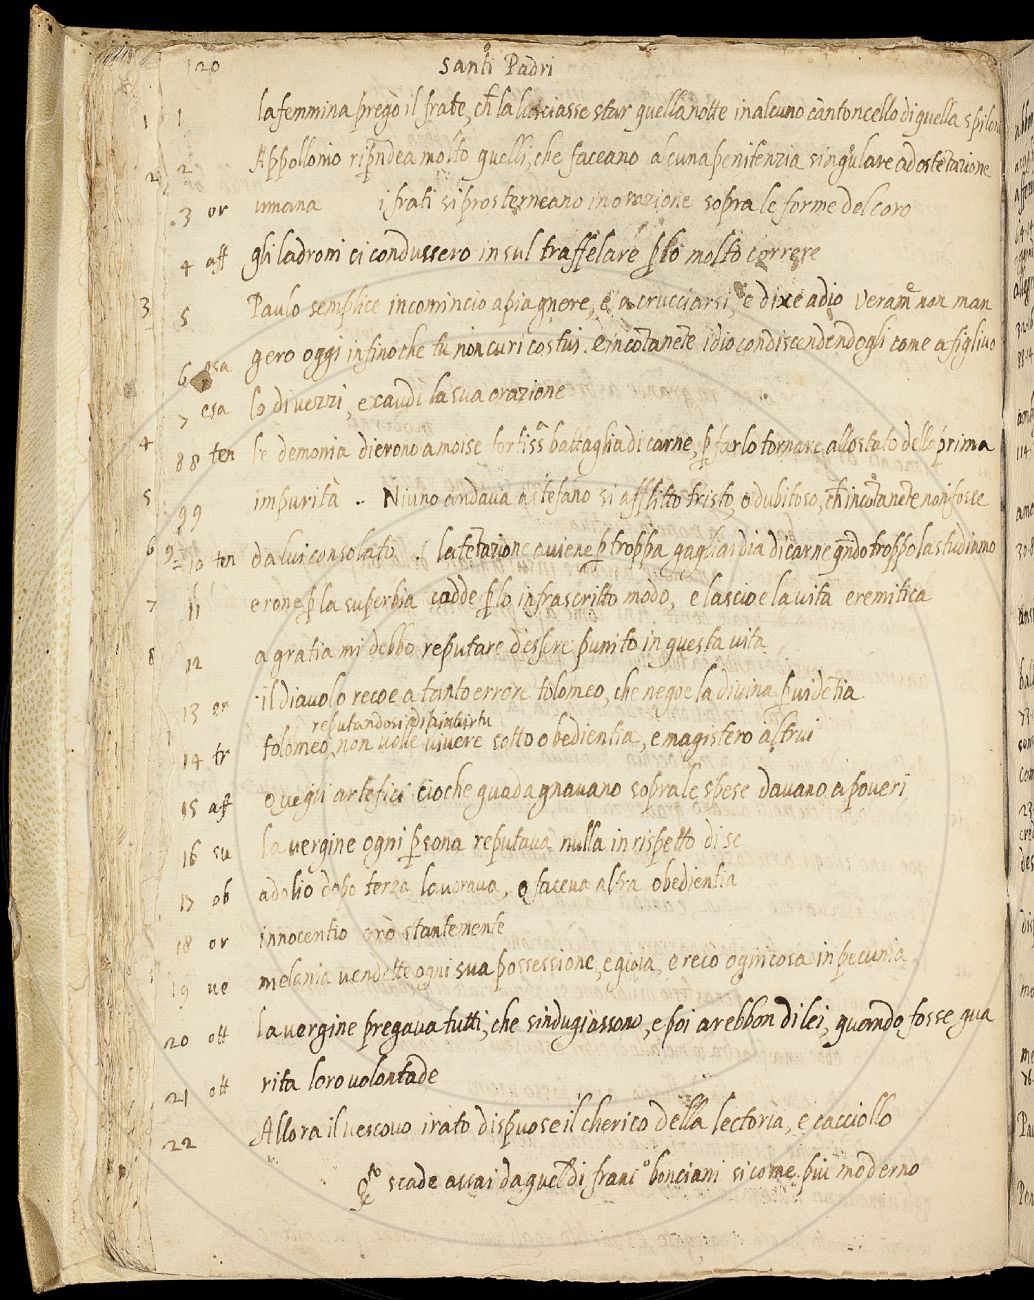 120 Santi Padri
1 1 la femmina pregò il frate, ch la lasciasse star quella notte in alcuno cantoncello di quella spilon
2 2 Appollonio riprndea molto quelli, che faceano alcuna penitenzia singulare ad ostetazione
3 or umana i frati si prosterneano in orazione sopra le forme del coro
4 aff gli ladroni ci condussero in sul traffelare p lo molto correre
3 5 Paulo semplice incominciò a piagnere, e a crucciarsi, e dixe a dio verame non man
6 esa gerò oggi infino che tu non curi costui. e incotanete idio condiscendendogli come a figliuo
7 esa lo di vezzi, exaudì la sua orazione
4 88 ten le demonia dierono a moise fortiss battaglia di carne, p farlo tornare allo stato della prima
5 99 impurità .. Niuno andava a stefano si afflitto tristo, o dubitoso, ch incotanete non fosse
6 9 10 ten da lui consolato . la tetazione aviene p troppa gagliardia di carne qndo troppo la studiamo
7 11 erone p la superbia cadde p lo infrascritto modo, e lascioe la vita eremitica
8 12 a gratia mi debbo reputare dessere punito in questa vita
13 er il diavolo recoe a tanto errore tolomeo, che negoe la divina pvidetia
reputandosi di più virtu
14 tr tolomeo, non volle vivere sotto obedientia, e magistero altrui
15 aff Quegli artefici ciò che guadagnavano sopra le spese davano a poveri
16 su la vergine ogni psona reputava nulla in rispetto di se
17 ob adolio dopo terza lavorava, o faceva altra obedientia
18 or innocentio orò stantemente
19 ve melania vendette ogni sua possessione, e gioia, e recò ogni cosa in pecunia
20 ott la vergine pregava tutti, che sindugiassono, e poi arebbon di lei, quando fosse gua
21 ott rita loro volontade
22 Allora il vescovo irato dispuose il cherico della lectoria, e cacciollo
scade assai da quel di franc bonciani si come più moderno